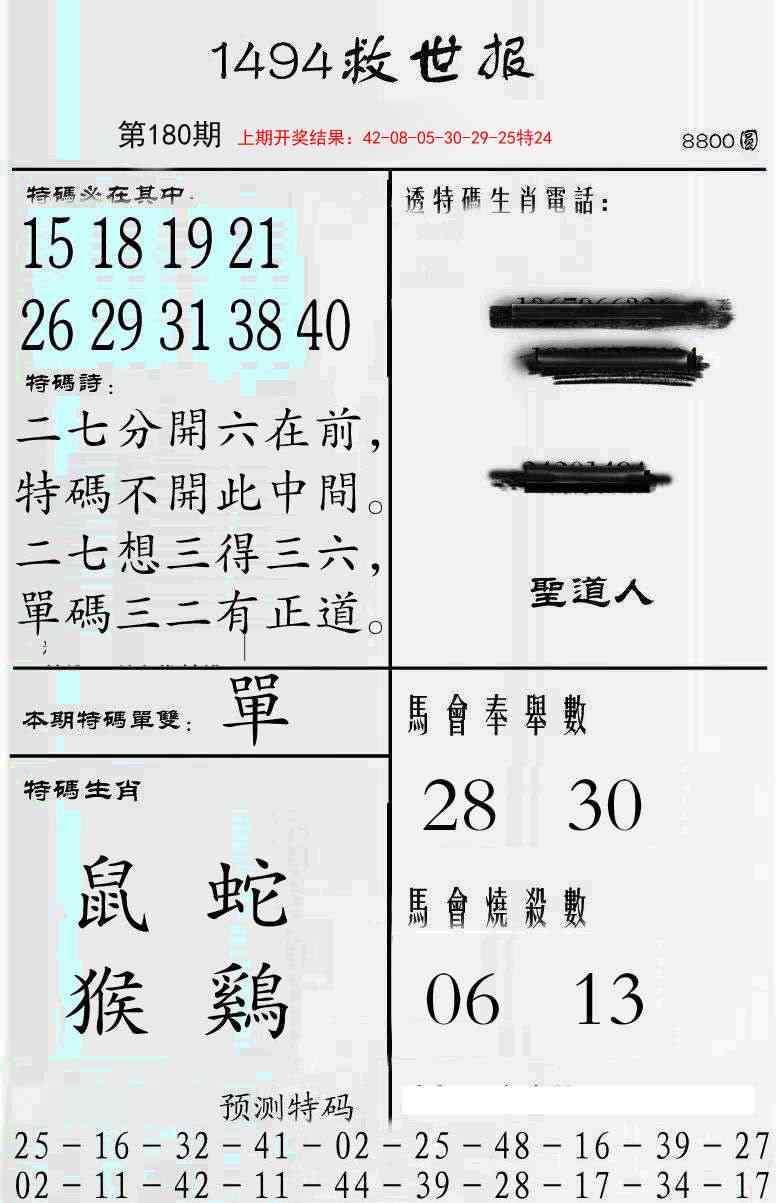 1494救世报
第180期 上期开奖结果：42-08-05-30-29-25特24 8800圆
特碼必在其中:
15 18 19 21
26 29 31 38 40
特碼詩：
二七分開六在前，
特碼不開此中間。
二七想三得三六，
單碼三二有正道。
透特碼生肖電話：
聖道人
本期特碼單雙：單
特碼生肖
鼠 蛇
猴 鷄
馬會奉舉數
28 30
馬會燒殺數
06 13
预测特码
25-16-32-41-02-25-48-16-39-27
02-11-42-11-44-39-28-17-34-17